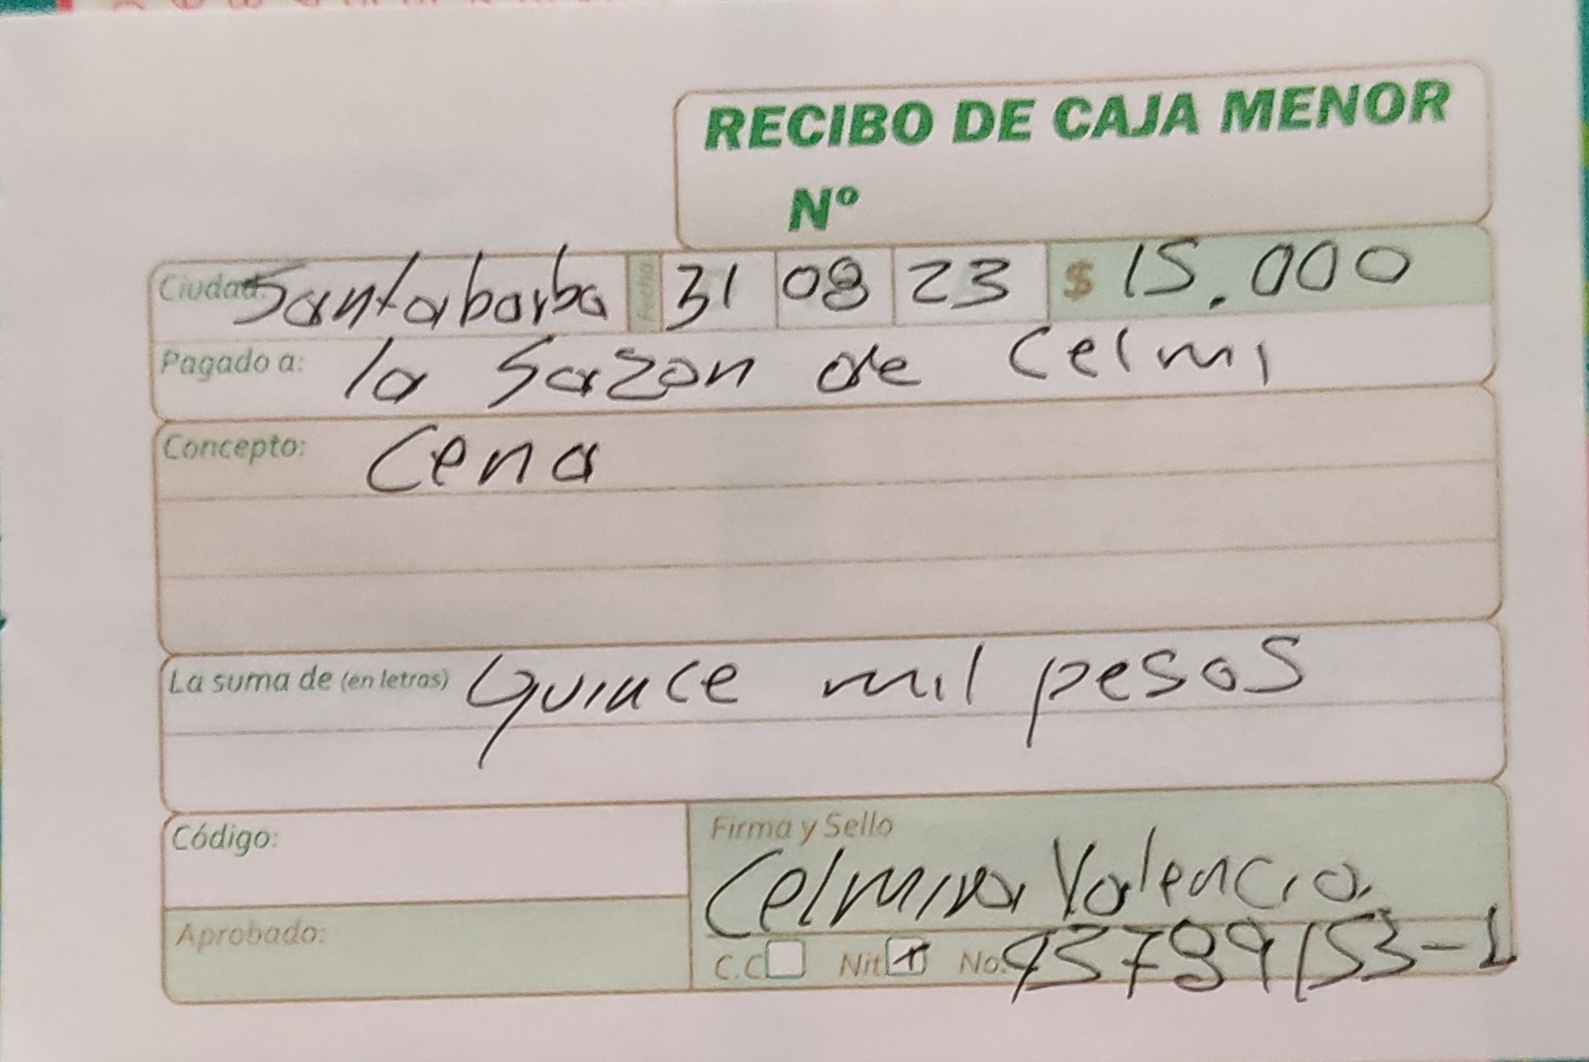 RECIBO DE CAJA MENOR
Nº
Ciudad: Santabarba Fecha 31 08 23 $ 15.000
Pagado a: la Sazon de Celmi
Concepto: Cena
La suma de (en letras) Quince mil pesos
Código:
Firma y Sello
Celmira Valencia
Aprobado:
C.C Nit x No.